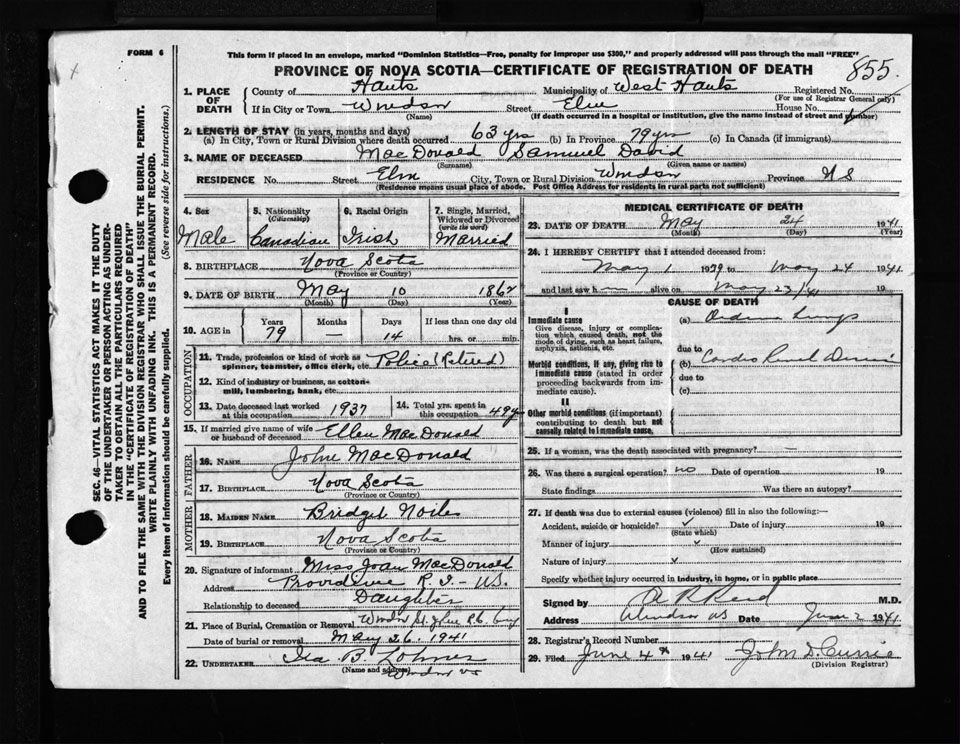 FORM 6
This form if placed in an envelope, marked "Dominion Statistics—Free, penalty for improper use $300," and properly addressed will pass through the mail "FREE"
PROVINCE OF NOVA SCOTIA—CERTIFICATE OF REGISTRATION OF DEATH
855.
1. PLACE OF DEATH
County of Hants Municipality of West Hants Registered No.
(For use of Registrar General only)
If in City or Town Windsor Street Elm House No.
(Name) (If death occurred in a hospital or institution, give the name instead of street and number)
2. LENGTH OF STAY (in years, months and days)
(a) In City, Town or Rural Division where death occurred 63 yrs (b) In Province 79 yrs (c) In Canada (if immigrant)
3. NAME OF DECEASED MacDonald Samuel David
(Surname) (Given name or names)
RESIDENCE No. Street Elm City, Town or Rural Division Windsor Province N S
(Residence means usual place of abode. Post Office Address for residents in rural parts not sufficient)
4. Sex
Male
5. Nationality (Citizenship)
Canadian
6. Racial Origin
Irish
7. Single, Married, Widowed or Divorced (write the word)
Married
8. BIRTHPLACE Nova Scotia
(Province or Country)
9. DATE OF BIRTH May 10 1862
(Month) (Day) (Year)
10. AGE in
Years Months Days If less than one day old
79 — 14 hrs. or min.
OCCUPATION
11. Trade, profession or kind of work as spinner, teamster, office clerk, etc. Police (Retired)
12. Kind of industry or business, as cotton-mill, lumbering, bank, etc.
13. Date deceased last worked at this occupation 1937
14. Total yrs. spent in this occupation 49 y
15. If married give name of wife or husband of deceased Ellen MacDonald
FATHER
16. NAME John MacDonald
17. BIRTHPLACE Nova Scotia
(Province or Country)
MOTHER
18. MAIDEN NAME Bridget Noiles
19. BIRTHPLACE Nova Scotia
(Province or Country)
20. Signature of informant Miss Joan MacDonald
Address Providence R. I - US.
Relationship to deceased Daughter
21. Place of Burial, Cremation or Removal Windsor St. John
Date of burial or removal May 26, 1941
22. UNDERTAKER Ira B
(Name and address) Windsor NS
MEDICAL CERTIFICATE OF DEATH
23. DATE OF DEATH May 24 1941
(Month) (Day) (Year)
24. I HEREBY CERTIFY that I attended deceased from:
May 1 1939 to May 24 1941
and last saw h im alive on May 23/41 19
CAUSE OF DEATH
I
Immediate cause
Give disease, injury or complication which caused death, not the mode of dying, such as heart failure, asphyxia, asthenia, etc.
(a) Oedema Lungs
due to
Morbid conditions, if any, giving rise to immediate cause (stated in order proceeding backwards from immediate cause).
(b) Cardio Renal Disease
due to
(c)
II
Other morbid conditions (if important) contributing to death but not causally related to immediate cause.
25. If a woman, was the death associated with pregnancy? —
26. Was there a surgical operation? no Date of operation 19
State findings Was there an autopsy?
27. If death was due to external causes (violence) fill in also the following:—
Accident, suicide or homicide? Date of injury 19
(State which)
Manner of injury
(How sustained)
Nature of injury
Specify whether injury occurred in industry, in home, or in public place
Signed by Reid M.D.
Address Windsor NS Date June 2 1941
28. Registrar's Record Number
29. Filed June 4th 1941 John D. Currie
(Division Registrar)
SEC. 46—VITAL STATISTICS ACT MAKES IT THE DUTY
OF THE UNDERTAKER OR PERSON ACTING AS UNDER-
TAKER TO OBTAIN ALL THE PARTICULARS REQUIRED
IN THE "CERTIFICATE OF REGISTRATION OF DEATH"
AND TO FILE THE SAME WITH THE DIVISION REGISTRAR WHO SHALL ISSUE THE BURIAL PERMIT.
WRITE PLAINLY WITH UNFADING INK. THIS IS A PERMANENT RECORD.
Every item of information should be carefully supplied. (See reverse side for instructions.)